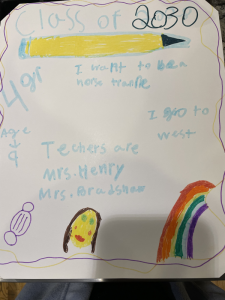 Class of 2030
I want to be a
norse trainle
4gr
I go to
west
Age
9
Techers are
Mrs. Henry
Mrs. Bradshaw